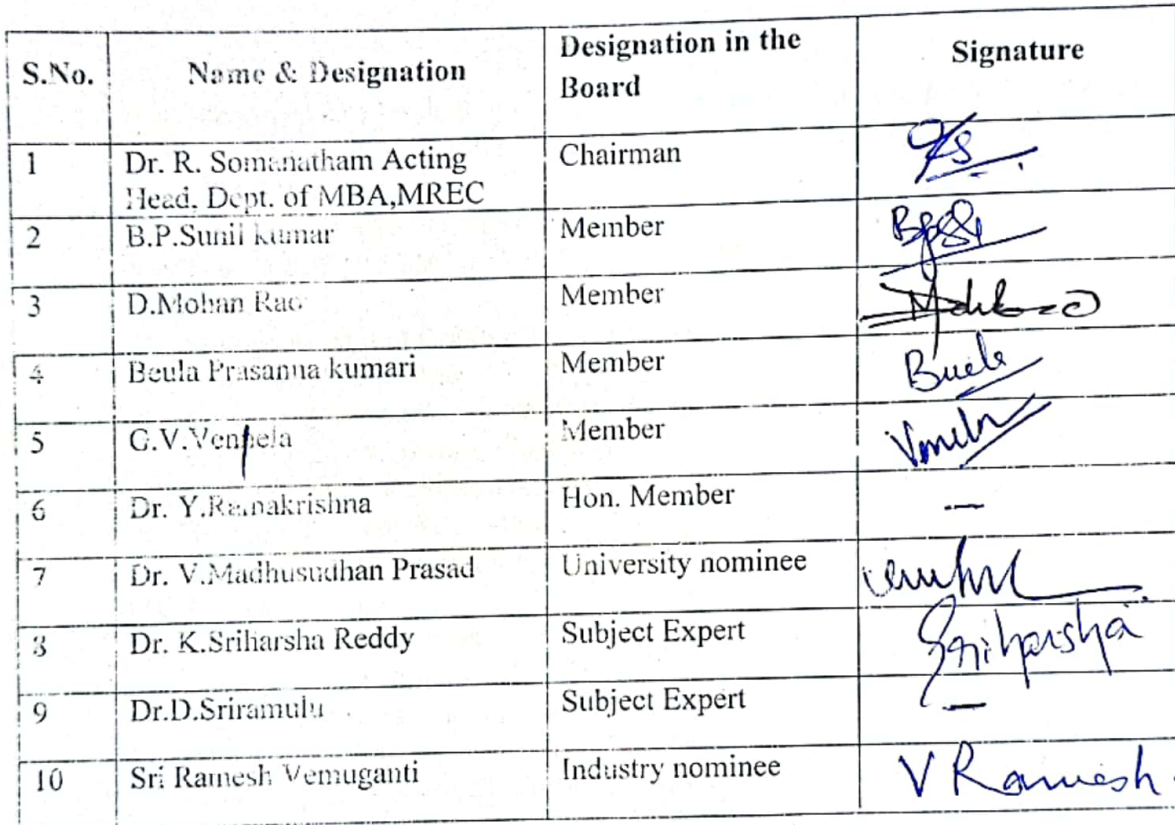 S.No. Name & Designation Designation in the Board Signature
1 Dr. R. Somanatham Acting Chairman
Head, Dept. of MBA,MREC
2 B.P.Sunil kumar Member
3 D.Mohan Rao Member
4 Beula Prasanna kumari Member
5 G.V.Vennela Member
6 Dr. Y.Ramakrishna Hon. Member —
7 Dr. V.Madhusudhan Prasad University nominee
8 Dr. K.Sriharsha Reddy Subject Expert Sriharsha
9 Dr.D.Sriramulu Subject Expert —
10 Sri Ramesh Vemuganti Industry nominee V Ramesh.